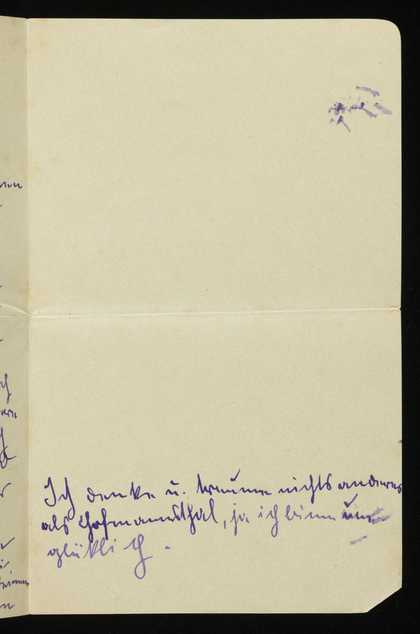 Ich denke u. traume nichts anderes
als Hofmannsthal, ja ich binn un
glükli ch.